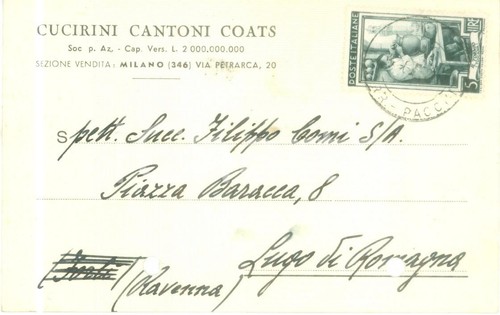 CUCIRINI CANTONI COATS
Soc p. Az, - Cap. Vers. L. 2 000.000.000
SEZIONE VENDITA: MILANO (346) VIA PETRARCA, 20
POSTE ITALIANE
LIRE
5
PACCHI
Spett. Succ. Filippo Comi S/A.
Piazza Baracca, 8
Lugo di Romagna
(Forlì)
(Ravenna)